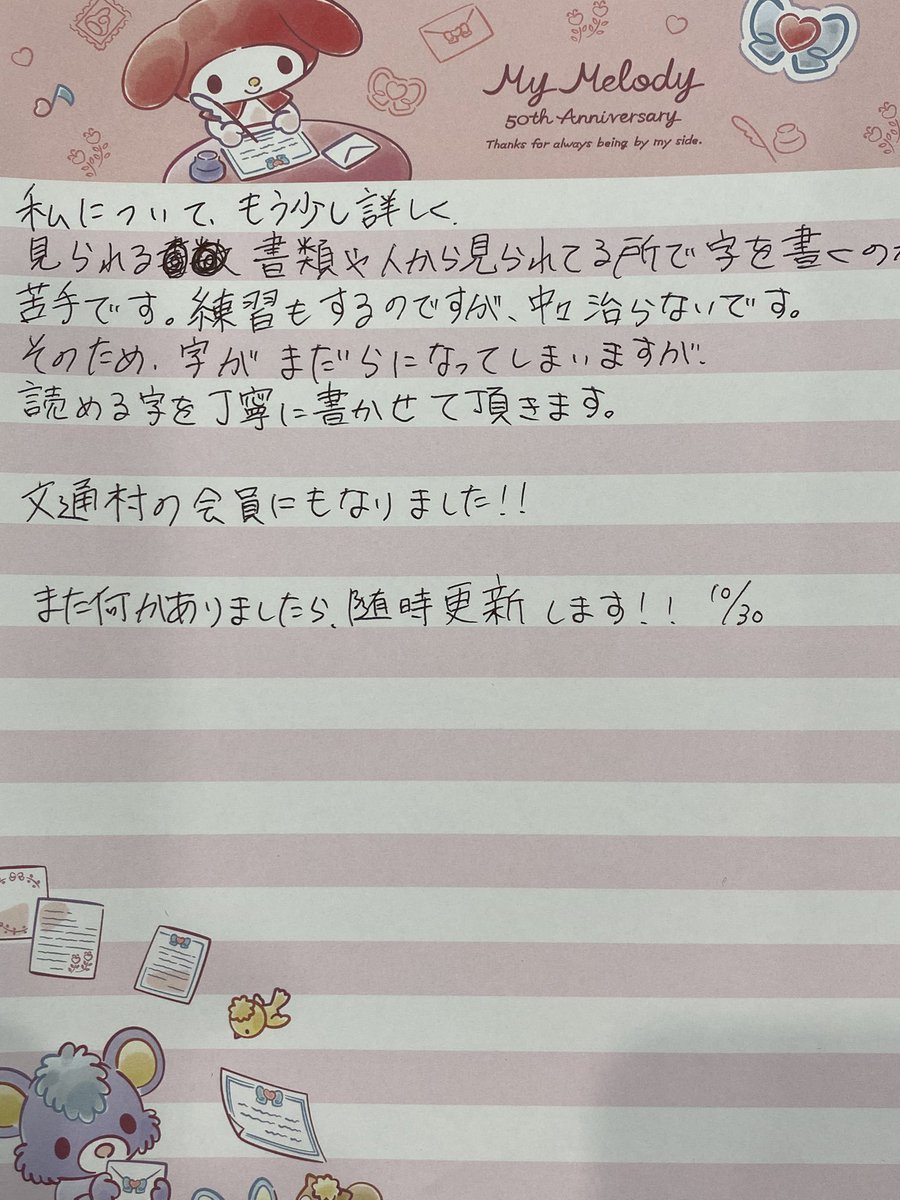 My Melody
50th Anniversary
Thanks for always being by my side.
私について、もう少し詳しく、
見られる 書類や人から見られてる所で字を書くのが
苦手です。練習もするのですが、中々治らないです。
そのため、字がまだらになってしまいますが、
読める字を丁寧に書かせて頂きます。
文通村の会員にもなりました!!
また何かありましたら、随時更新します!! 10/30